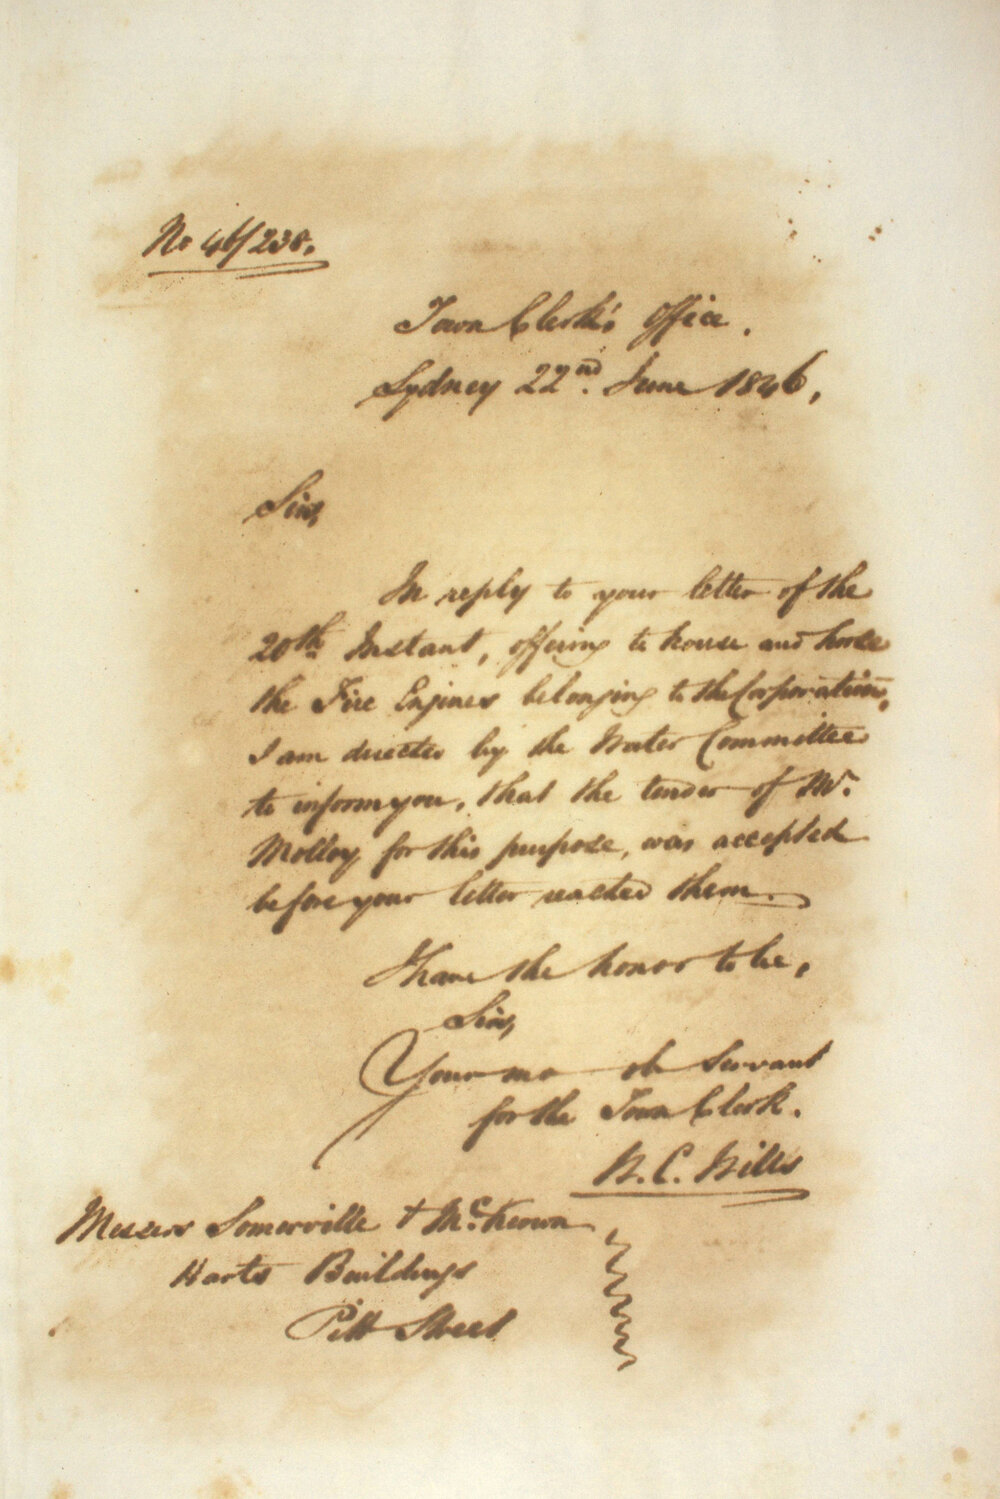 No 46/238.
Town Clerk's Office.
Sydney 22nd. June 1846,
Sirs,
In reply to your letter of the
20th Instant, offering to house and horse
the Fire Engines belonging to the Corporation,
I am directed by the Water Committee
to inform you, that the tender of Mr.
Molloy for this purpose, was accepted
before your letter reached them.
I have the honor to be,
Sirs,
Your mo ob Servant
for the Town Clerk.
W. C. Wills
Messrs Somerville & McKeown
Harts Buildings
Pitt Street